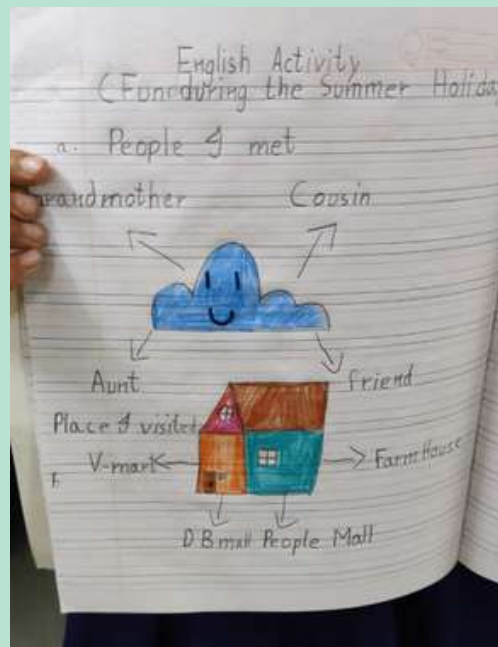 English Activity
(Fun during the Summer Holida
a. People I met
randmother Cousin
Aunt friend
Place I visited
V-mark Farm House
D B mall People Mall